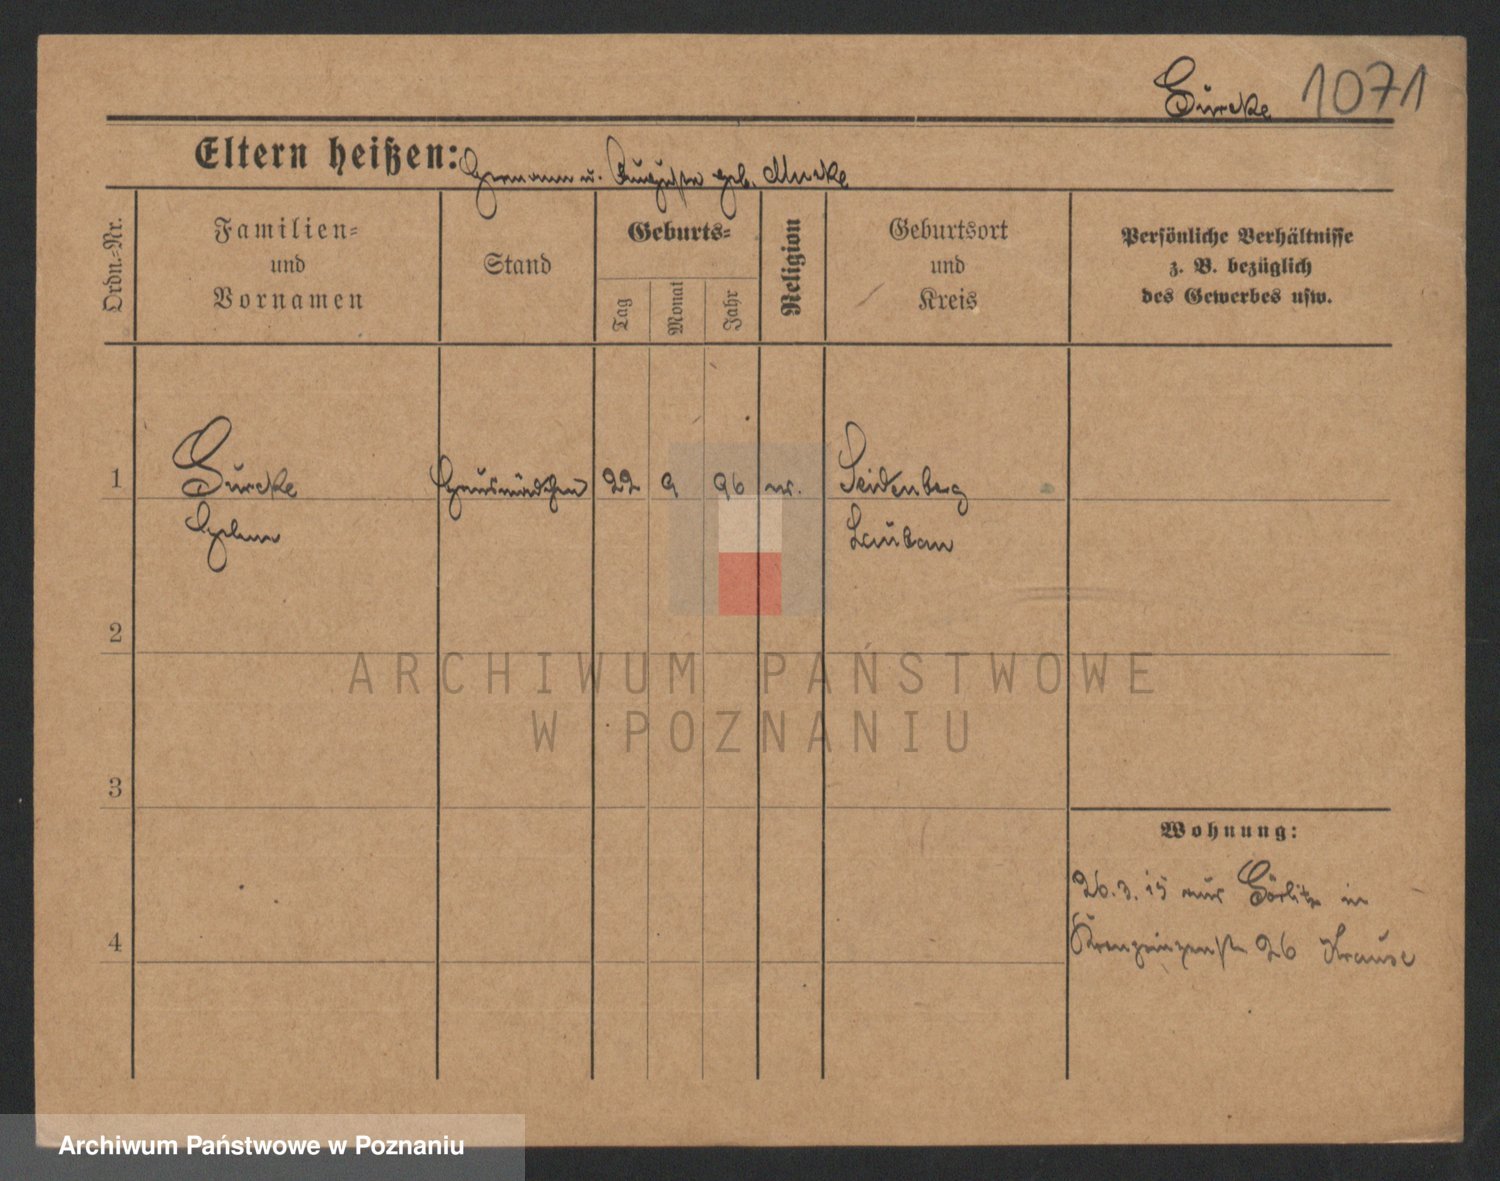 Gürcke 1071
Eltern heißen: Hermann u. Auguste geb. Mucke
Ordn.-Nr.
Familien-
und
Vornamen
Stand
Geburts-
Tag
Monat
Jahr
Religion
Geburtsort
und
Kreis
Persönliche Verhältnisse
z. B. bezüglich
des Gewerbes usw.
1 Gürcke Hausmädchen 22 9 96 Seidenberg
Lauban
2
3
4
Wohnung:
26.3.15 aus Görlitz in
Kronprinzenstr 26 Krause
ARCHIWUM PAŃSTWOWE
W POZNANIU
Archiwum Państwowe w Poznaniu